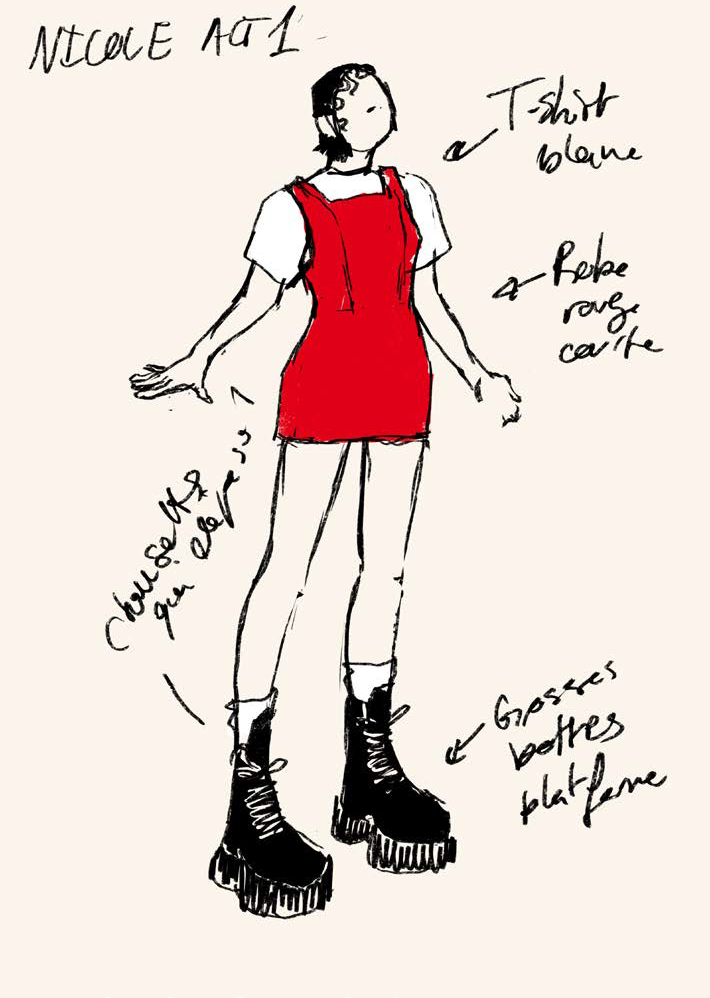 NICOLE ACT 1
T-shirt
blanc
Robe
rouge
courte
Chaussettes
qui
Grosses
bottes
platforme